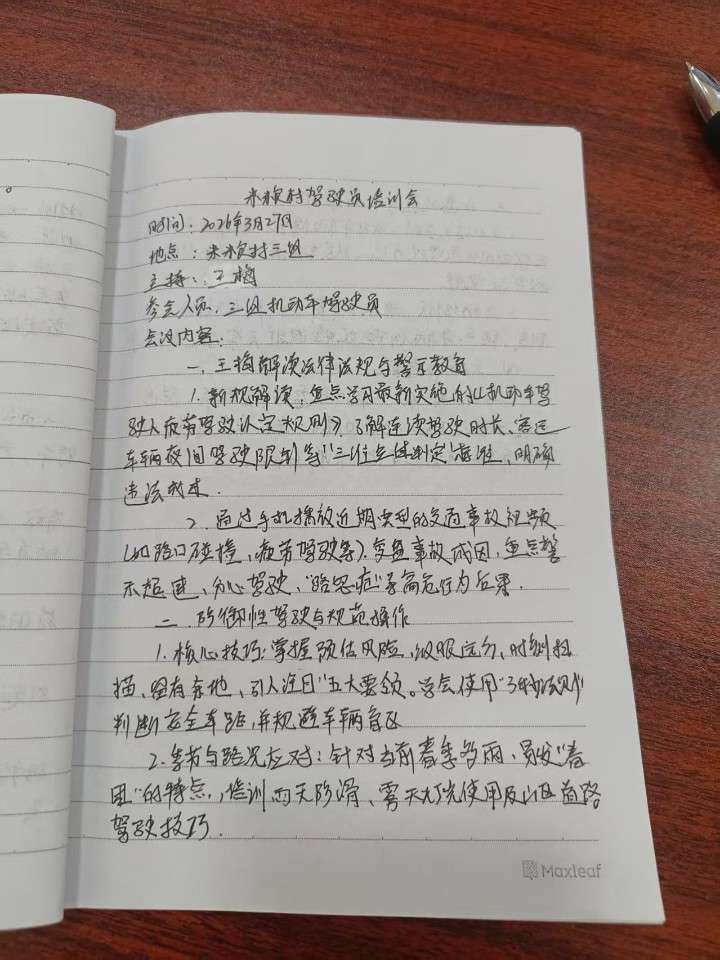 米粮村驾驶员培训会
时间：2026年3月27日
地点：米粮村三组
主持：王梅
参会人员：三组机动车驾驶员
会议内容：
一、王梅解读法律法规与警示教育
1.新规解读：重点学习最新实施的《机动车驾
驶人疲劳驾驶认定规则》，了解连续驾驶时长、客运
车辆夜间驾驶限制等"三维立体判定"标准，明确
违法成本.
2.通过手机播放近期典型的交通事故视频
(如路口碰撞、疲劳驾驶等).复盘事故成因，重点警
示超速、分心驾驶、"路怒症"等高危行为后果.
二.防御性驾驶与规范操作
1.核心技巧：掌握预估风险、放眼远方、时刻扫
描、留有余地、引人注目"五大要领。学会使用"3秒法则"
判断安全车距，并规避车辆盲区
2.季节与路况应对：针对当前春季多雨、易发"春
困"的特点，培训雨天防滑、雾天灯光使用及山区道路
驾驶技巧.
Maxleaf